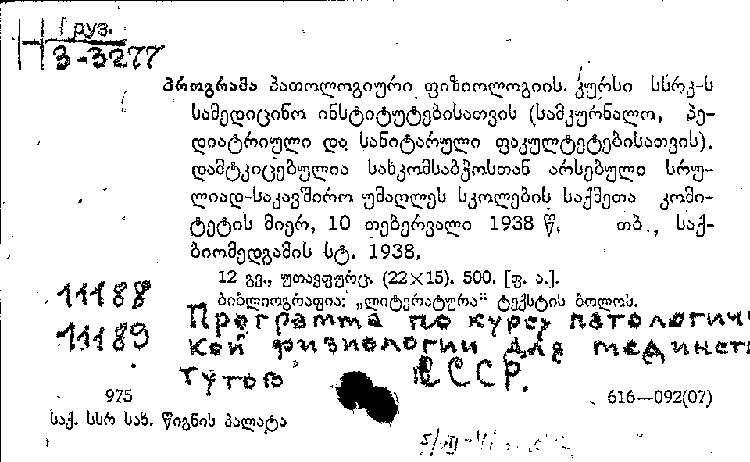 Груз.
3-3277
პროგრამა პათოლოგიური ფიზიოლოგიის. კურსი სსრკ-ს
სამედიცინო ინსტიტუტებისათვის (სამკურნალო, პე-
დიატრიული და სანიტარული ფაკულტეტებისათვის).
დამტკიცებულია სახკომსაბჭოსთან არსებული სრუ-
ლიად-საკავშირო უმაღლეს სკოლების საქმეთა კომი-
ტეტის მიერ, 10 თებერვალი 1938 წ. თბ., საქ-
ბიომედგამის სტ. 1938.
12 გვ., უთავფურც. (22×15). 500. [ფ. ა.].
ბიბლიოგრაფია: „ლიტერატურა“ ტექსტის ბოლოს.
11188
Программа по курсу патологичес
11189
кой физиологии для мединсти
тутов СССР.
975
616—092(07)
საქ. სსრ სახ. წიგნის პალატა